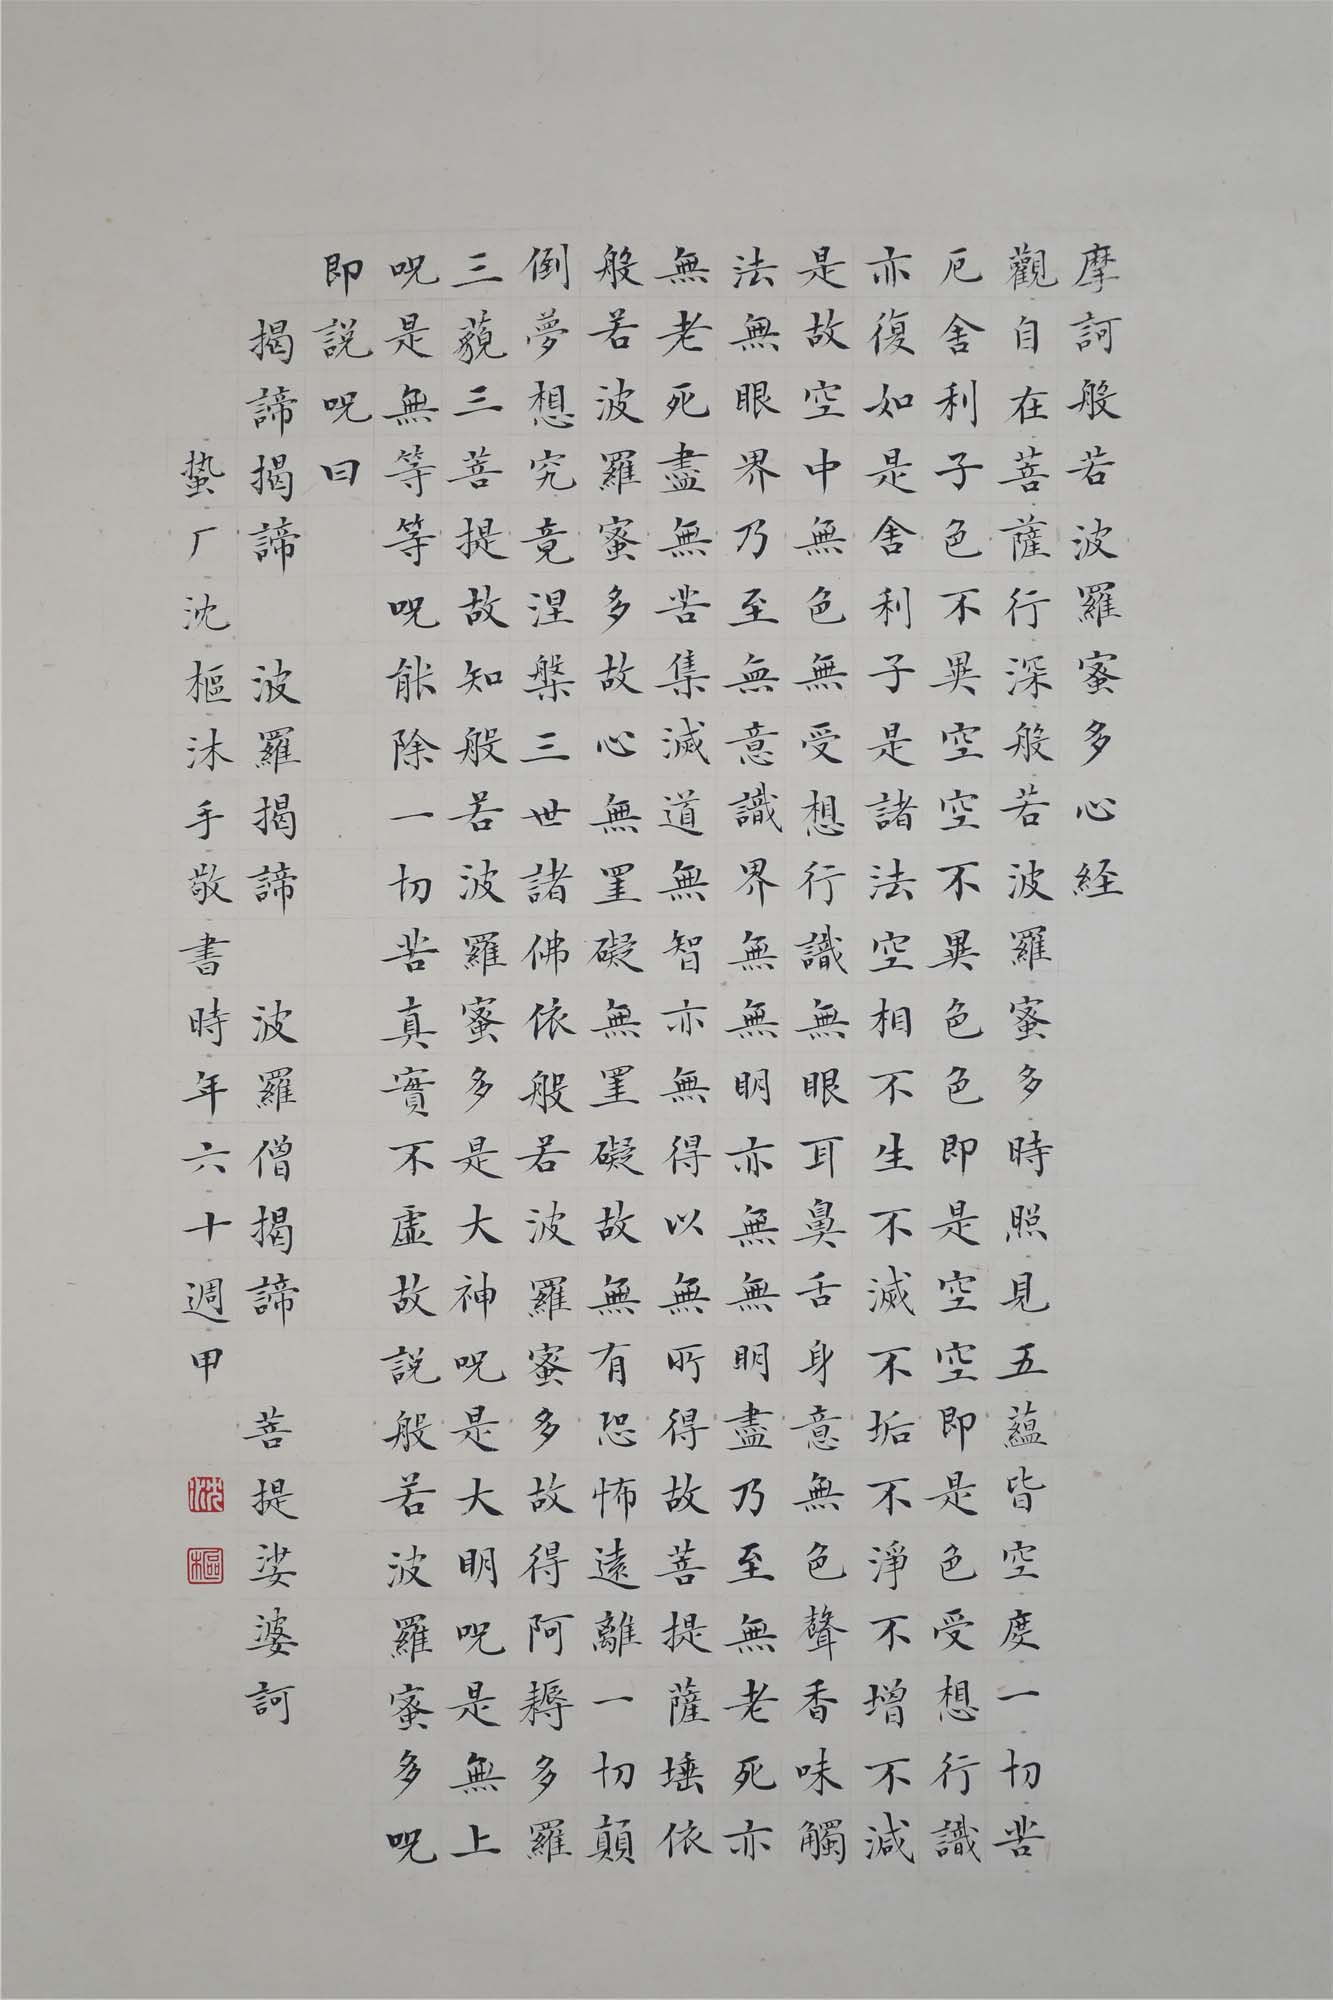 摩訶般若波羅蜜多心経
觀自在菩薩行深般若波羅蜜多時照見五蘊皆空度一切苦
厄舍利子色不異空空不異色色即是空空即是色受想行識
亦復如是舍利子是諸法空相不生不滅不垢不淨不增不減
是故空中無色無受想行識無眼耳鼻舌身意無色聲香味觸
法無眼界乃至無意識界無無明亦無無明盡乃至無老死亦
無老死盡無苦集滅道無智亦無得以無所得故菩提薩埵依
般若波羅蜜多故心無罣礙無罣礙故無有恐怖遠離一切顛
倒夢想究竟涅槃三世諸佛依般若波羅蜜多故得阿耨多羅
三藐三菩提故知般若波羅蜜多是大神呪是大明呪是無上
呪是無等等呪能除一切苦真實不虛故說般若波羅蜜多呪
即說呪曰
揭諦揭諦 波羅揭諦 波羅僧揭諦 菩提娑婆訶
蟄厂沈樞沐手敬書時年六十週甲
沈
樞